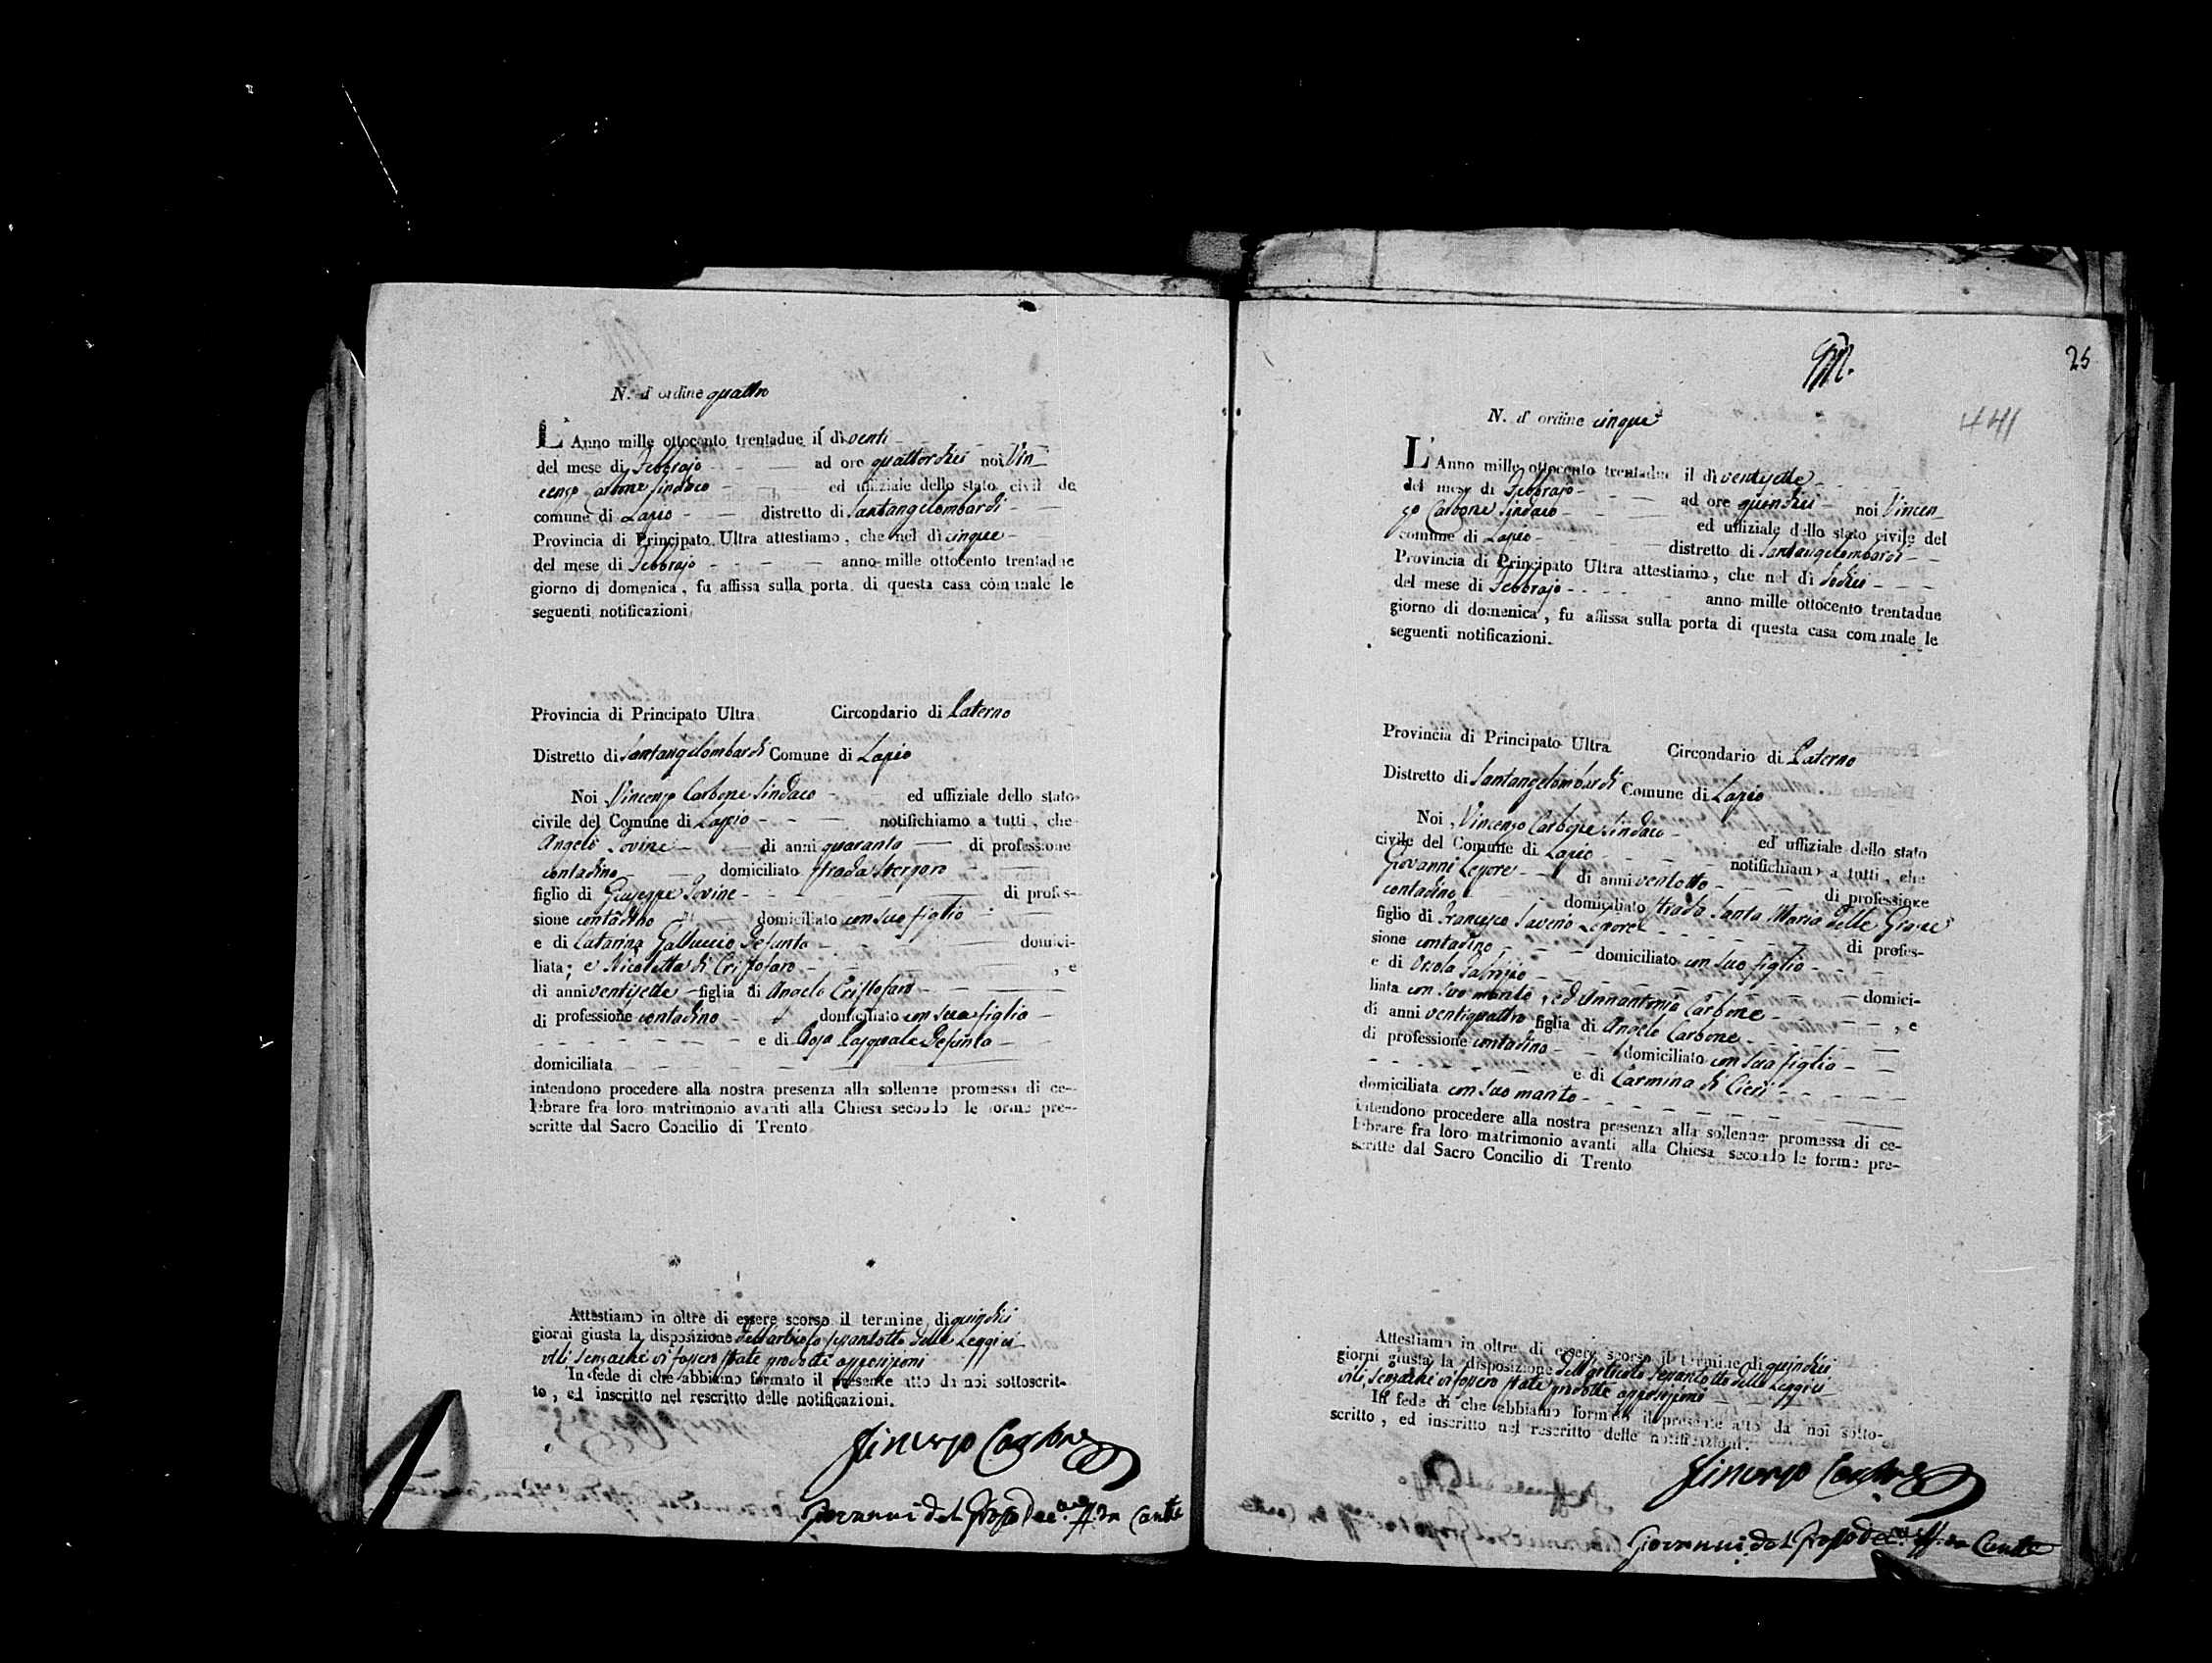 N. d' ordine quattro
L' Anno mille ottocento trentadue il dì venti
del mese di Febbrajo ad ore quattordici noi Vin
cenzo Carbone Sindaco ed uffiziale dello stato civil de
comune di Lapio distretto di Santangelombardi
Provincia di Principato Ultra attestiamo, che nel dì cinque
del mese di Febbrajo anno mille ottocento trentadue
giorno di domenica, fu affissa sulla porta di questa casa comunale le
seguenti notificazioni
Provincia di Principato Ultra Circondario di Paterno
Distretto di Santangelombardi Comune di Lapio
Noi Vincenzo Carbone Sindaco ed uffiziale dello stato
civile del Comune di Lapio notifichiamo a tutti, che
Angelo Iovine di anni quaranta di professione
contadino domiciliato strada
figlio di Giuseppe Iovine di profes-
sione contadino domiciliato con suo figlio
e di Catarina Galluccio Defunta domici-
liata; e Nicoletta di Cristofaro , e
di anni ventisette figlia di Angelo Cristofaro
di professione contadino domiciliato con sua figlia
e di Rosa Pasquale Defunta
domiciliata
intendono procedere alla nostra presenza alla sollenne promessa di ce-
lebrare fra loro matrimonio avanti alla Chiesa secondo le forme pre-
scritte dal Sacro Concilio di Trento
Attestiamo in oltre di essere scorso il termine di quindici
giorni giusta la disposizione dell'articolo sessantotto delle Leggi ci
vili, senzache vi fossero state prodotte opposizioni
In fede di che abbiamo formato il presente atto da noi sottoscrit-
to, ed inscritto nel rescritto delle notificazioni.
Vincenzo Carbone
Giovanni del Grosso
25
441
N. d' ordine cinque
L' Anno mille ottocento trentadue il dì ventisette
del mese di Febbrajo ad ore quindici noi Vincen
zo Carbone Sindaco ed uffiziale dello stato civile del
comune di Lapio distretto di Santangelombardi
Provincia di Principato Ultra attestiamo, che nel dì dodici
del mese di Febbrajo anno mille ottocento trentadue
giorno di domenica, fu affissa sulla porta di questa casa comunale le
seguenti notificazioni.
Provincia di Principato Ultra Circondario di Paterno
Distretto di Santangelombardi Comune di Lapio
Noi Vincenzo Carbone Sindaco ed uffiziale dello stato
civile del Comune di Lapio notifichiamo a tutti, che
Giovanni Lepore di anni ventotto di professione
contadino domiciliato strada Santa Maria delle Grazie
figlio di Francesco Saverio Lepore di profes-
sione contadino domiciliato con suo figlio
e di Orsola domici-
liata con suo marito, ed Annantonia Carbone , e
di anni ventiquattro figlia di Angelo Carbone
di professione contadino domiciliato con sua figlia
e di Carmina di Cieri
domiciliata con suo marito
intendono procedere alla nostra presenza alla sollenne promessa di ce-
lebrare fra loro matrimonio avanti alla Chiesa secondo le forme pre-
scritte dal Sacro Concilio di Trento
Attestiamo in oltre di essere scorso il termine di quindici
giorni giusta la disposizione dell'articolo sessantotto delle Leggi ci
vili, senzache vi fossero state prodotte opposizioni
In fede di che abbiamo formato il presente atto da noi sotto-
scritto, ed inscritto nel rescritto delle notificazioni.
Vincenzo Carbone
Giovanni del Grosso